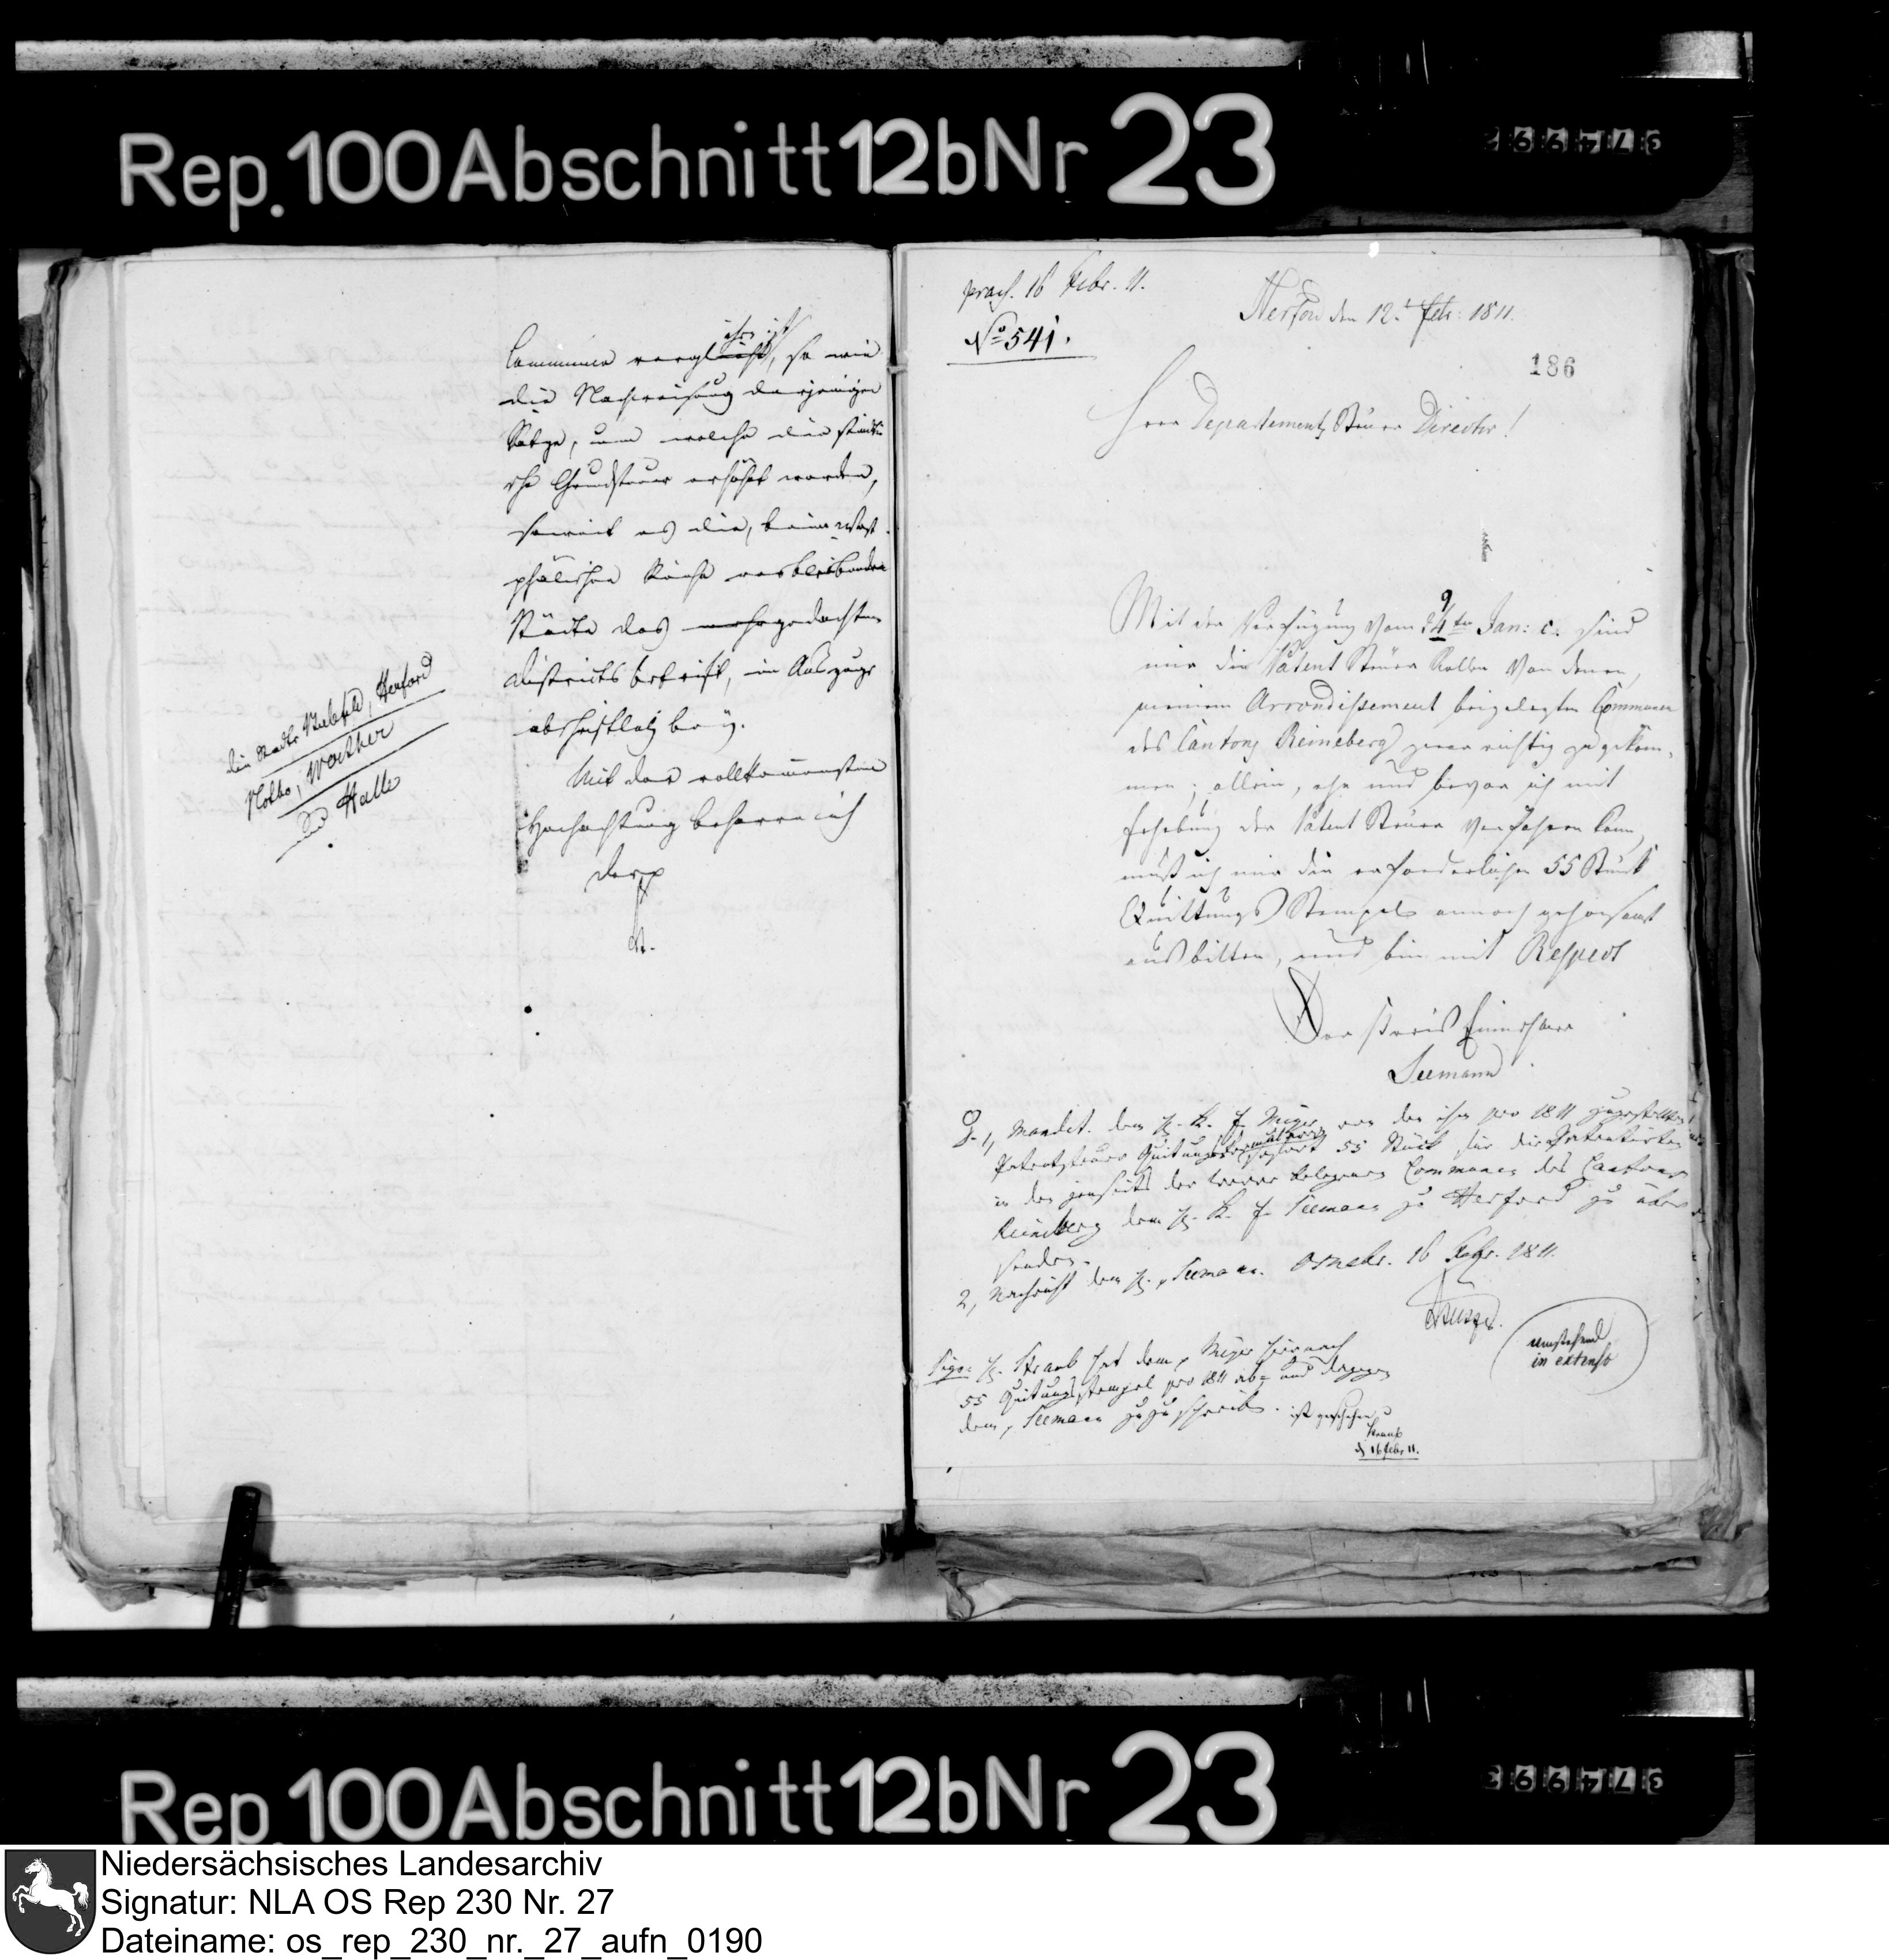 Rep. 100 Abschnitt 12b Nr 23
ihr ist
Commune vergleicht, so wie
die Nachweisung derjenigen
Sätze, um welche die städti
sche Grundsteuer erhöhet worden,
soweit es die, beim West-
phälischen Reiche verbleibenden
Städte des mehrgedachten
Districts betrift, im Auszuge
abschriftlich bey.
Mit der vollkommensten
Hochachtung beharre ich
der p
die Städte Bielefeld, Herford
Vlotho, Werther
und Halle
praes. 16 Febr. 11.
No 541.
Herford den 12t Feb: 1811.
186
Herr Departements Steuer Director!
Mit der Verfügung vom ten Jan: c. sind
mir die Patent Steuer Rollen von denen,
meinem Arrondissement beigelegten Communen
des Cantons Reineberg zwar richtig zugekom-
men; allein, ehe und bevor ich mit
Erhebung der Patent Steuer verfahren kann,
muß ich mir die erforderlichen 55 Stück
Quittungs Stempel annoch gehorsamst
ausbitten, und bin mit Respect
Der Kreis Einnehmer
Seemann
1, Mandet. dem H. K. E. Meyer von den ihm pro 1811 zugestellten
Patentsteuer Quitungs sofort 55 Stück für die Patentirten
in den jenseits der belegenen Communen des Cantons
Reineberg dem H. K. E. Seemann zu Herford zu über
senden.
2, Nachricht dem H. p Seemann. Osnabr. 16 Febr. 1811.
umstehend
in extenso
Sign: H. Straub hat dem p Meyer hiernach
55 Quitungsstempel pro 1811 ab- und dagegen
dem p Seemann zuzuschreiben. ist geschehen
Straub
d 16 Febr 11.
Rep. 100 Abschnitt 12b Nr 23
Niedersächsisches Landesarchiv
Signatur: NLA OS Rep 230 Nr. 27
Dateiname: os_rep_230_nr._27_aufn_0190